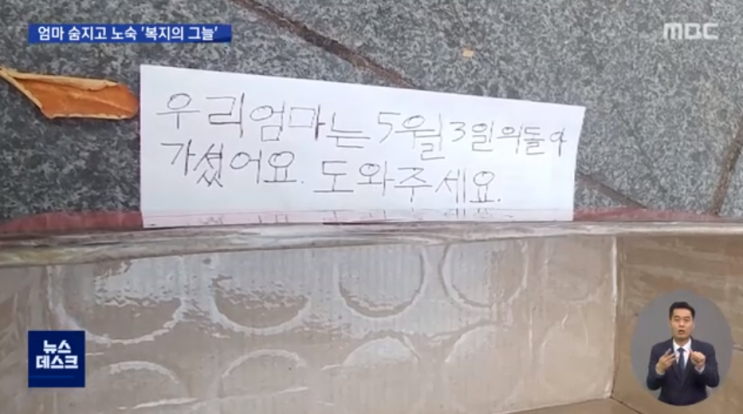 엄마 숨지고 노숙 '복지의 그늘'
MBC
우리엄마는 5월3일에돌아
가셨어요. 도와주세요.
뉴스
데스크